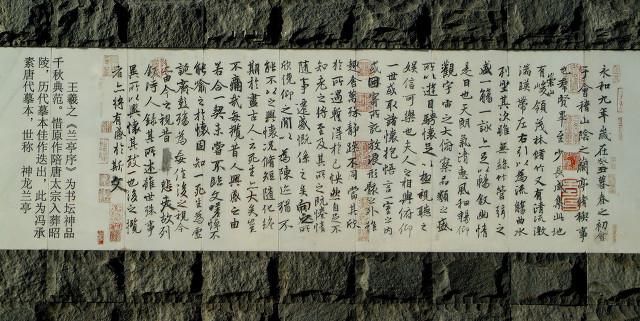 永和九年歲在癸丑暮春之初會
于會稽山陰之蘭亭脩稧事
也群賢畢至少長咸集此地
有崇山峻領茂林脩竹又有清流激
湍暎帶左右引以為流觴曲水
列坐其次雖無絲竹管弦之
盛一觴一詠亦足以暢敘幽情
是日也天朗氣清惠風和暢仰
觀宇宙之大俯察品類之盛
所以遊目騁懷足以極視聽之
娛信可樂也夫人之相與俯仰
一世或取諸懷抱悟言一室之內
或因寄所託放浪形骸之外雖
趣舍萬殊靜躁不同當其欣
於所遇暫得於己怏然自足不
知老之將至及其所之既惓情
隨事遷感慨係之矣向之所
欣俛仰之閒以為陳跡猶不
能不以之興懷況脩短隨化終
期於盡古人云死生亦大矣豈
不痛哉每攬昔人興感之由
若合一契未嘗不臨文嗟悼不
能喻之於懷固知一死生為虛
誕齊彭殤為妄作後之視今
亦由今之視昔悲夫故列
敘時人錄其所述雖世殊事
異所以興懷其致一也後之攬
者亦將有感於斯文
王羲之《兰亭序》为书坛神品
千秋典范。惜原作陪唐太宗入葬昭
陵,历代摹本佳作迭出,此为冯承
素唐代摹本,世称 神龙兰亭